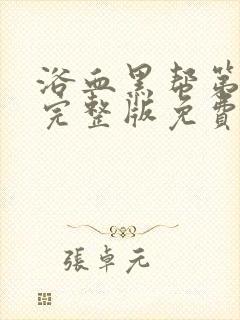 浴血黑帮第
完整版免費
張卓元